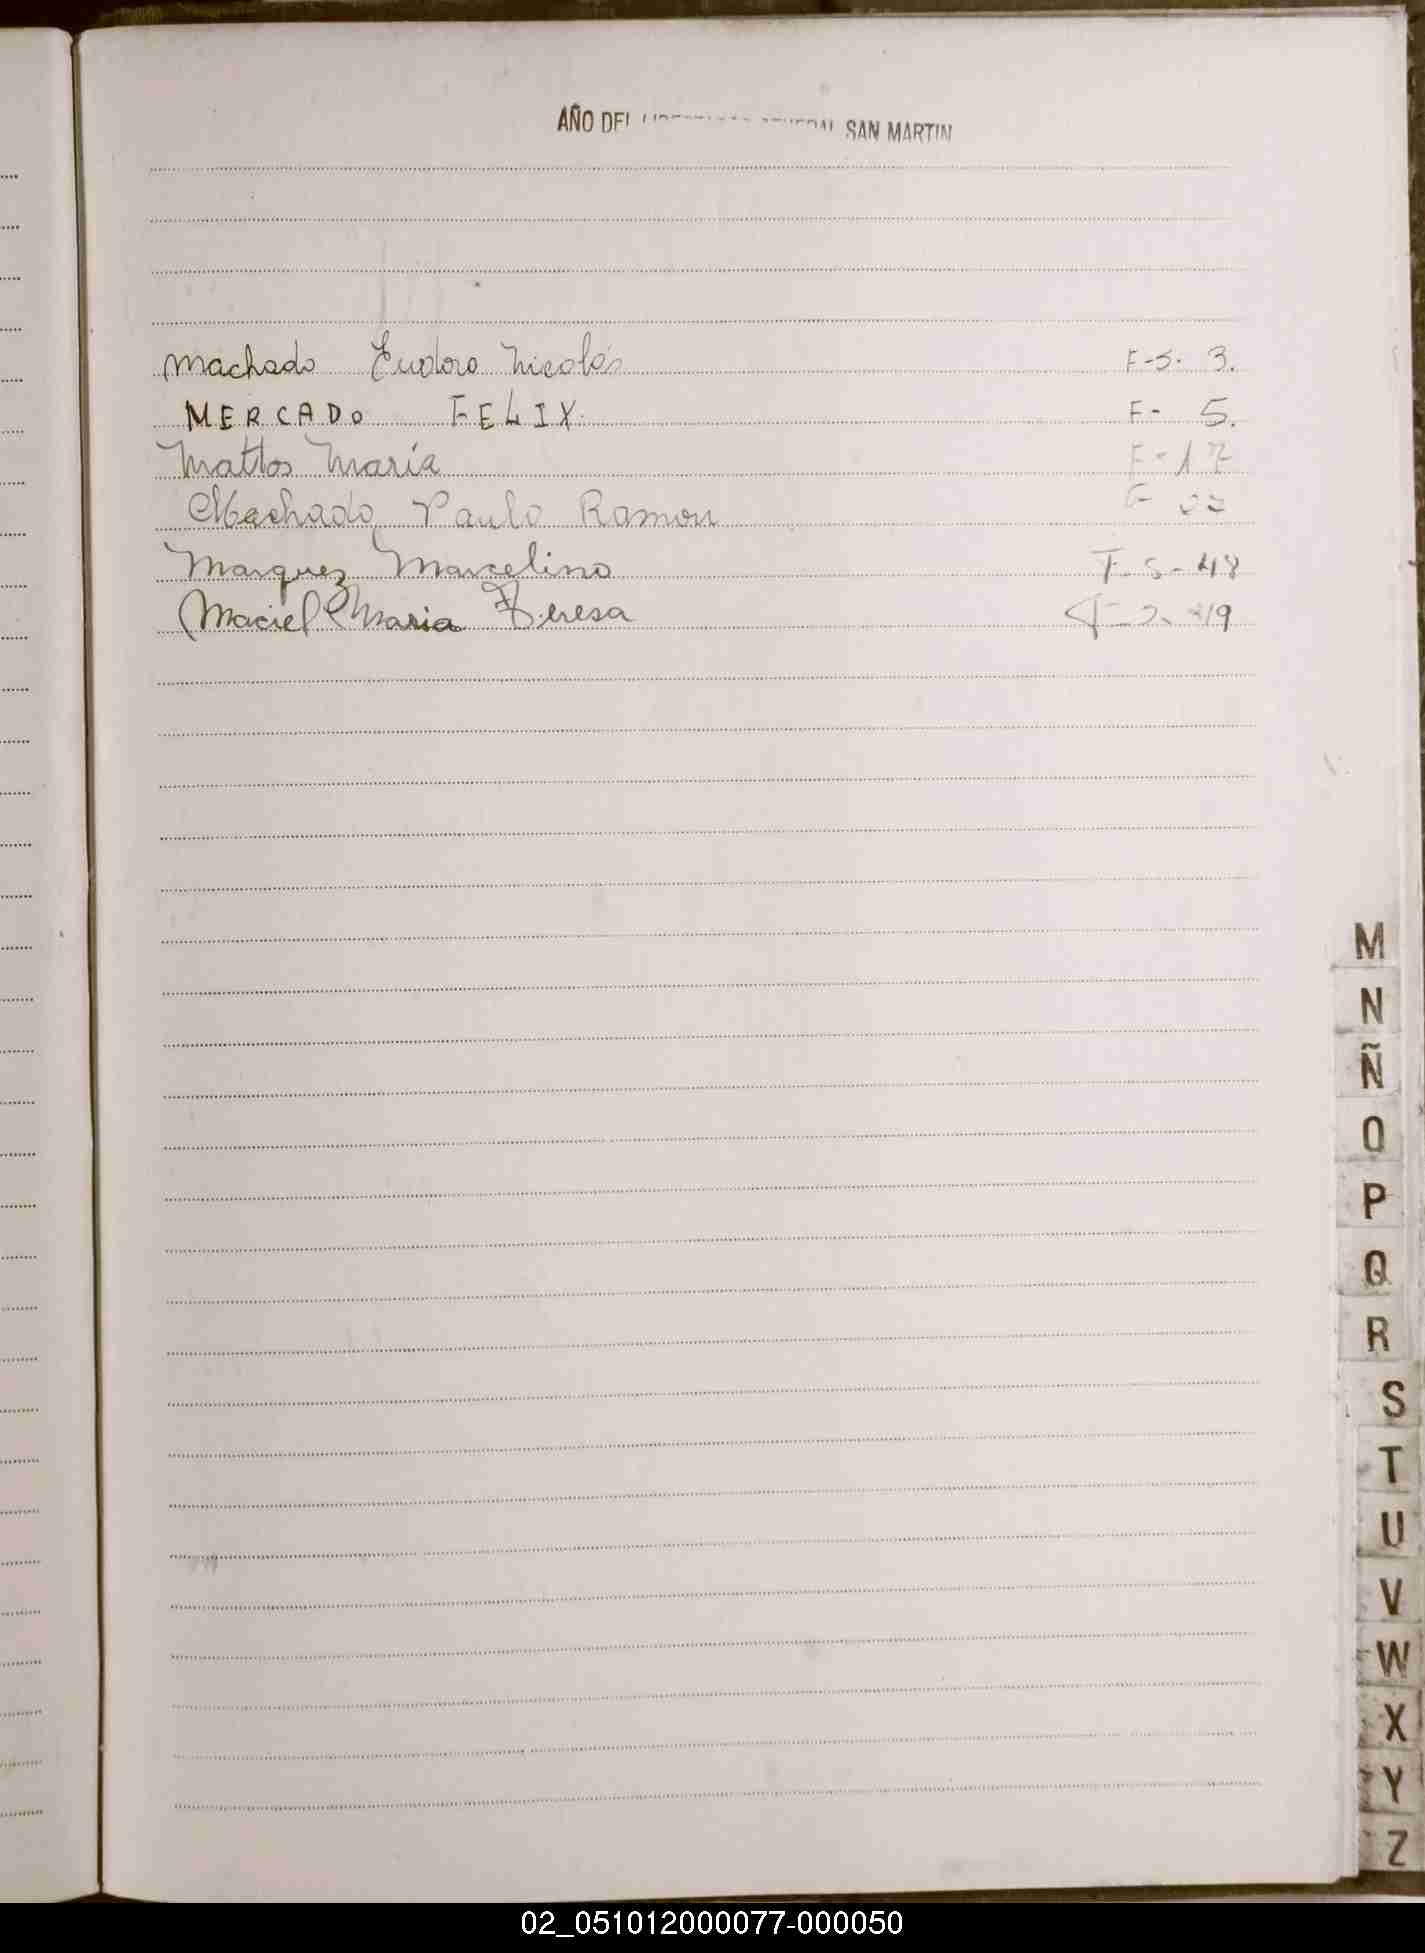 AÑO DEL LIBERTADOR GENERAL SAN MARTIN
Machado Eudoro Nicolás F-5- 3.
MERCADO FELIX. F- 5.
Mattos María F-17
Machado Paulo Ramon F-
Marquez Marcelino F-5-48
Maciel Maria Teresa 49
M
N
Ñ
O
P
Q
R
S
T
U
V
W
X
Y
Z
02_051012000077-000050